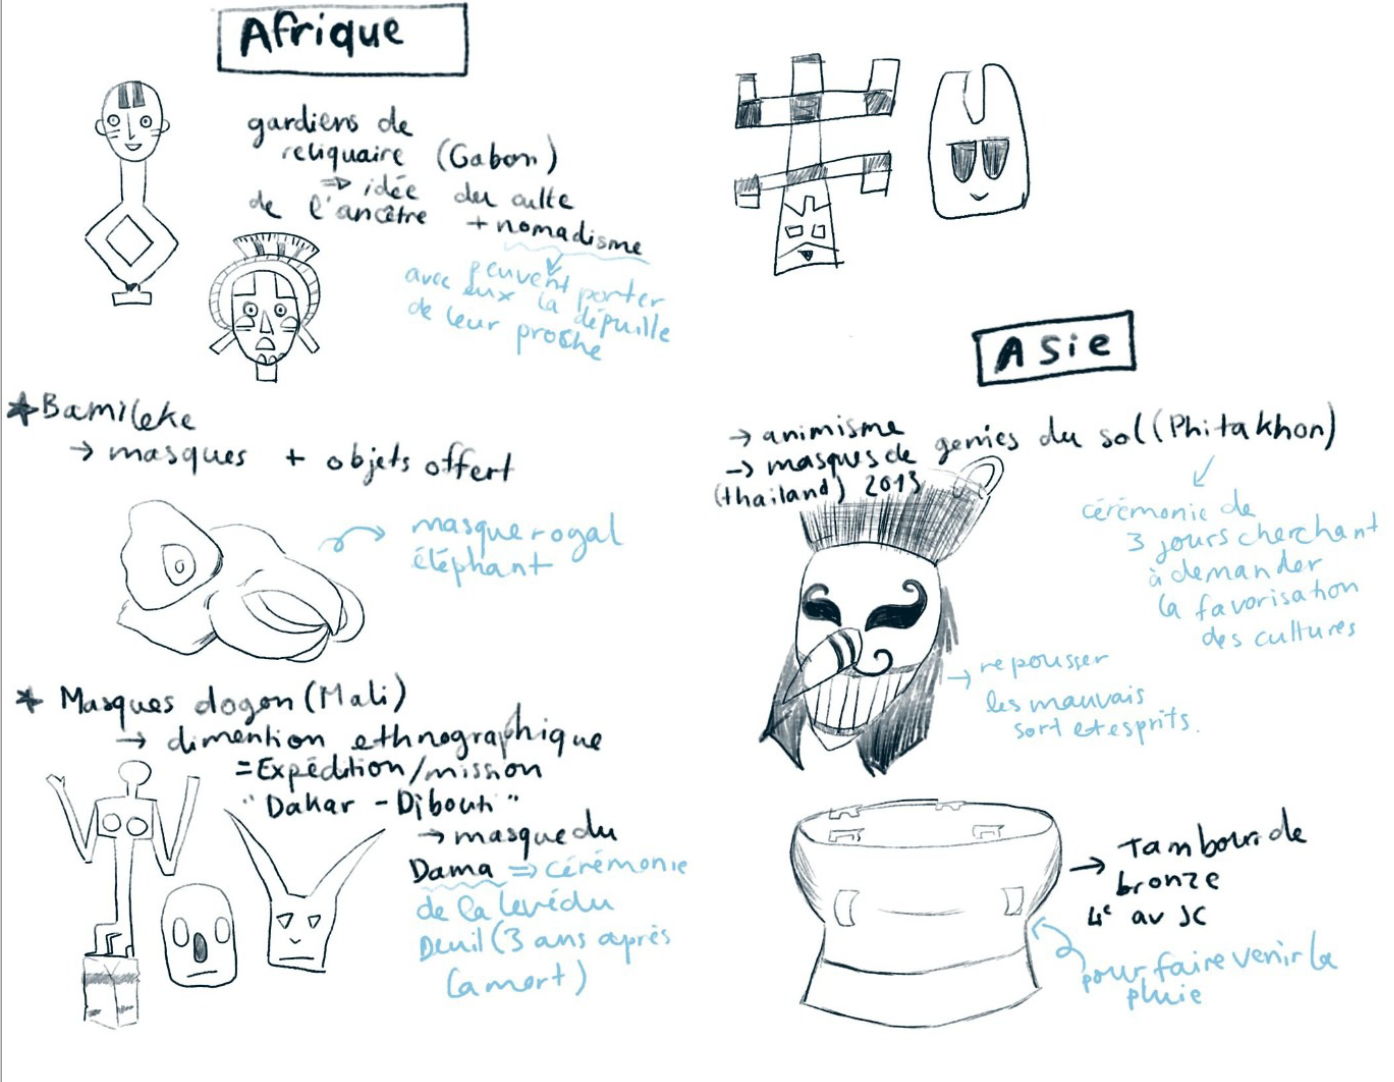 Afrique
gardiens de
reliquaire (Gabon)
⇒ idée du culte
de l'ancêtre + nomadisme
peuvent porter
avec eux la dépuille
de leur proche
* Bamileke
→ masques + objets offert
masque royal
éléphant
* Masques dogon (Mali)
→ dimention ethnographique
= Expédition/mission
"Dakar - Djibouti"
→ masque du
Dama ⇒ cérémonie
de la levé du
Deuil (3 ans après
la mort)
Asie
→ animisme
→ masques de genies du sol (Phitakhon)
(thailand) 2013
cérémonie de
3 jours cherchant
à demander
la favorisation
des cultures
→ repousser
les mauvais
sort et esprits.
→ Tambour de
bronze
4e av JC
pour faire venir la
pluie